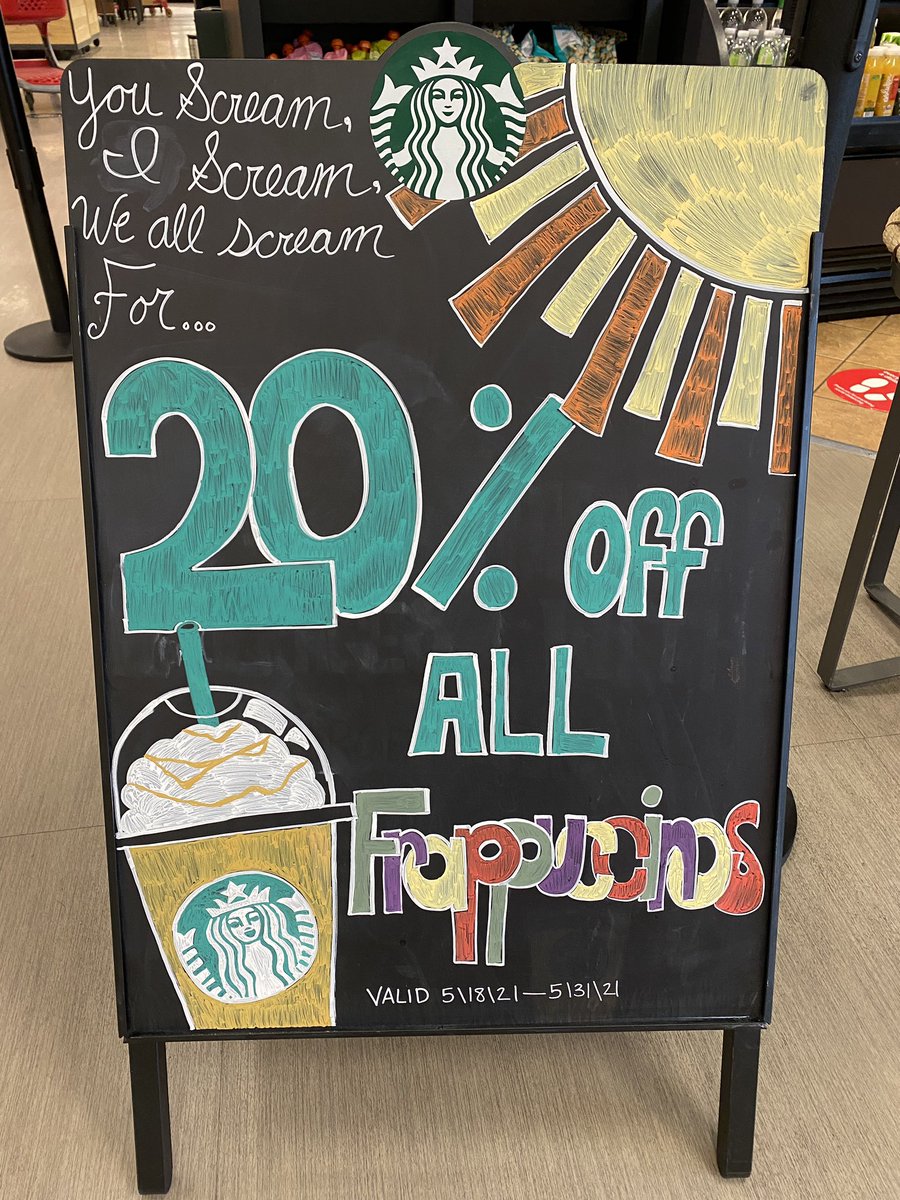 You Scream,
I Scream,
We all scream
For...
20% Off
ALL
Frappuccinos
VALID 5\18\21—5\31\21